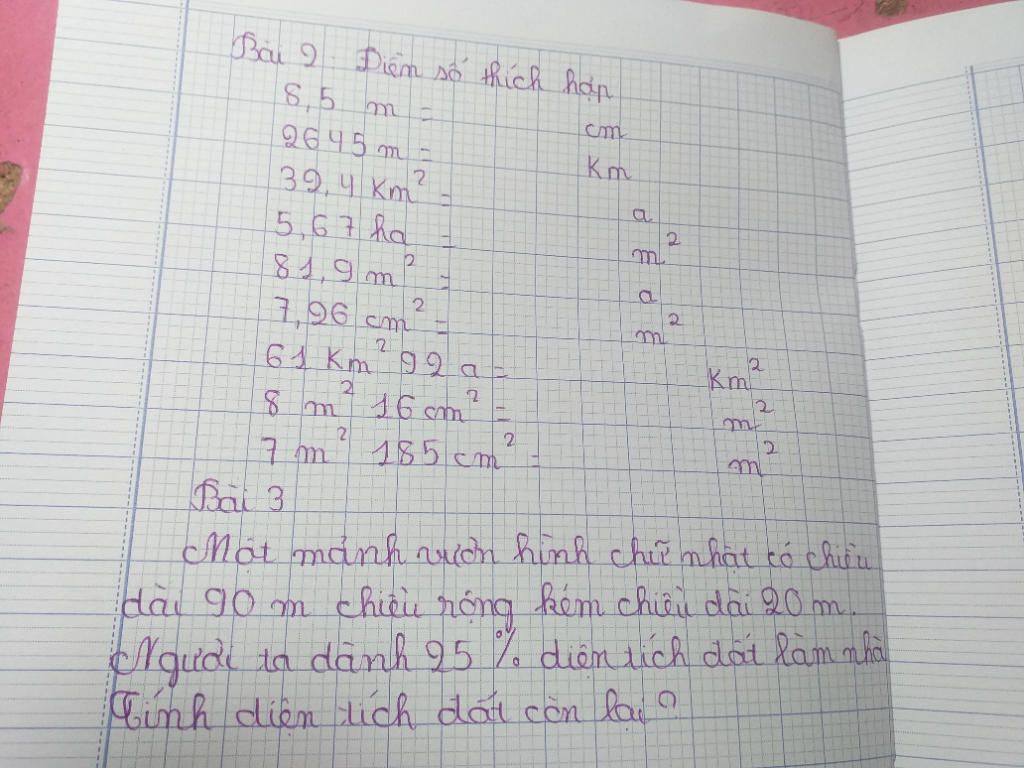 Bài 2. Điền số thích hợp
8,5 m = cm
2645 m = km
39,4 km² = a
5,67 ha = m²
81,9 m² = a
7,96 cm² = m²
61 km² 92 a = km²
8 m² 16 cm² = m²
7 m² 185 cm² = m²
Bài 3
Một mảnh vườn hình chữ nhật có chiều
dài 90 m chiều rộng kém chiều dài 20 m.
Người ta dành 25 % diện tích đất làm nhà
Tính diện tích đất còn lại?